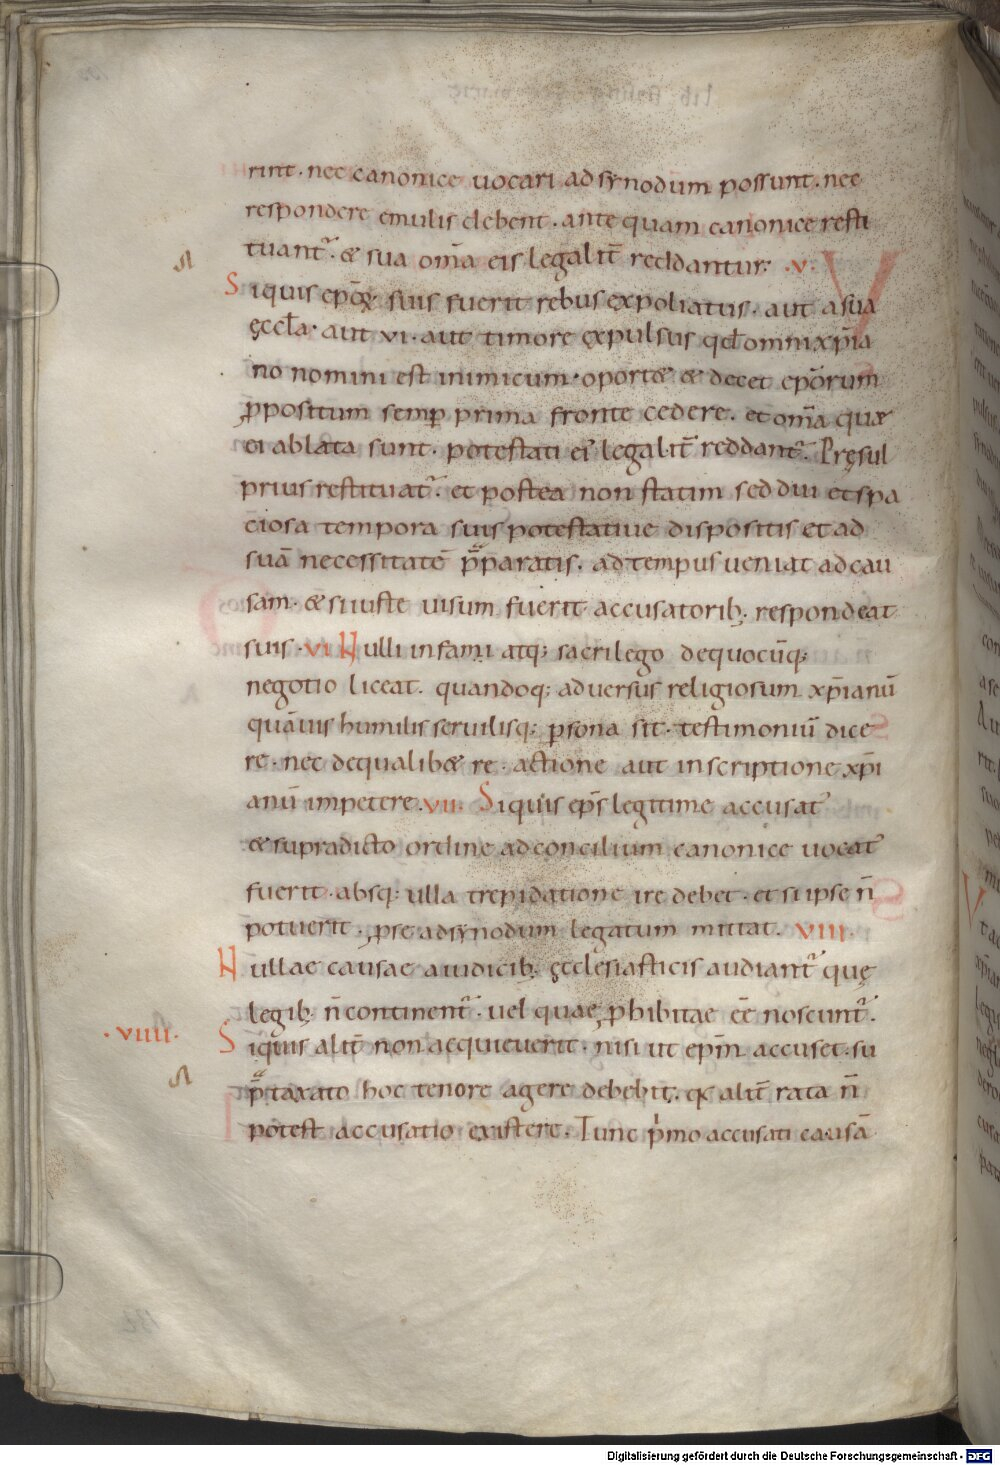 rint · nec canonice uocari ad synodum possunt · nec
respondere emulis debent · ante quam canonice resti
tuant̃ · & sua om̅a eis legalit̅ reddantur · V ·
Siquis ep̅o℞ suis fuerit rebus expoliatus · aut a sua
ęccl̅a · aut vi · aut timore expulsus qd̅ omni xp̅ia
no nomini est inimicum · oport& & decet ep̅orum
ꝓpositum semꝑ prima fronte cedere · et om̅a quae
ei ablata sunt · potestati ei᾽ legalit̅ reddant̃ · Pręsul
prius restituat̃ · et postea non statim sed diu et spa
ciosa tempora suis potestatiue dispositis et ad
suā necessitatē p̅paratis · ad tempus ueniat ad cau
sam · & si iuste uisum fuerit accusatorib; respondeat
suis · VI Nulli infami atq; sacrilego de quocūq;
negotio liceat · quandoq; aduersus religiosum xp̅ianū
quāuis humilis seruilisq; ꝑsona sit · testimoniū dice
re · nec de qualib& re · actione aut inscriptione xp̅i
anū impetere · VII · Siquis ep̅s legitime accusat̃
& supradicto ordine ad concilium canonice uocat̃
fuerit · absq; ulla trepidatione ire debet · et si ipse n̅
potuerit · ꝓ se ad synodum legatum mittat · VIII ·
Nullae causae a iudicib; ęcclesiasticis audiant̃ quę
legib; n̅ continent̃ · uel quae ꝓhibitae eē noscunt̃ ·
· VIIII · Siquis alit̅ non acquieuerit · nisi ut ep̅m accuset · su
p̅taxato hoc tenore agere debebit · qa alit̅ rata n̅
potest accusatio existere · Tunc pⁱmo accusati causā
Digitalisierung gefördert durch die Deutsche Forschungsgemeinschaft - DFG